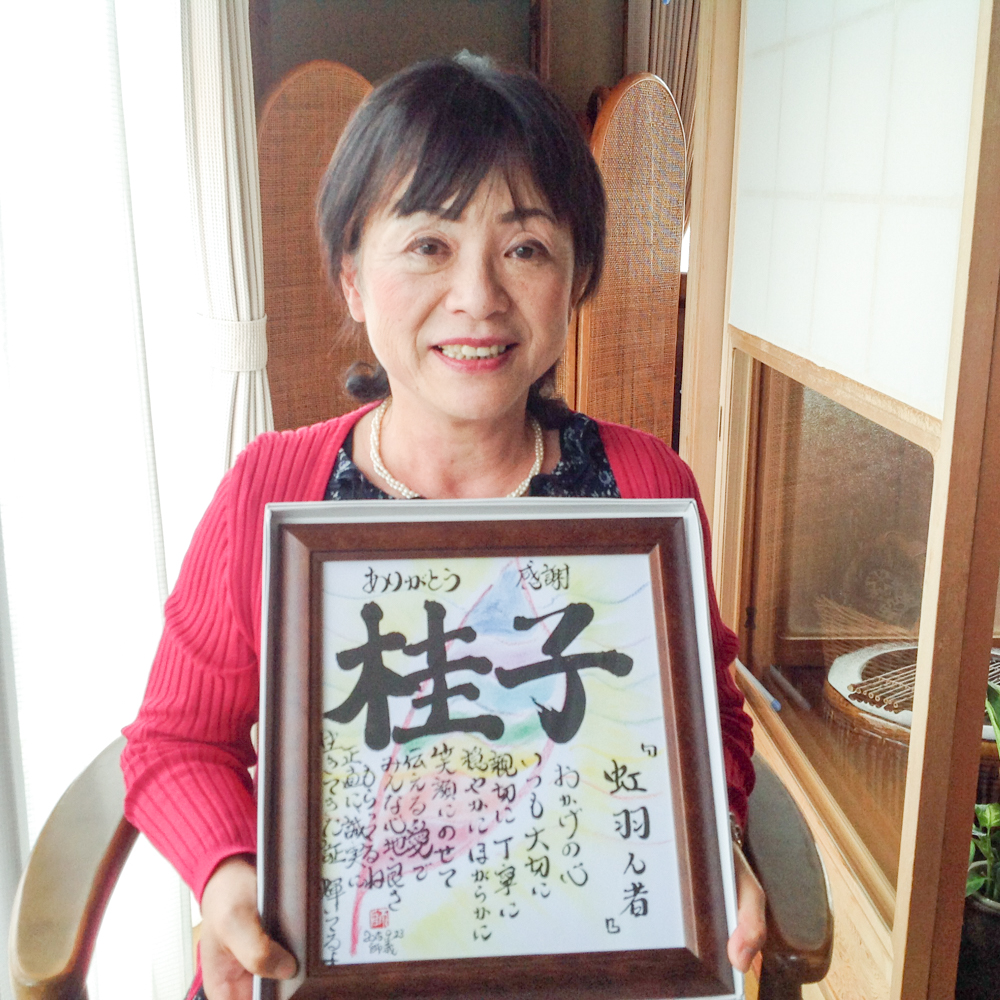 ありがとう 感謝
桂子
『虹羽ん者』
おかげの心
いつも大切に
親切に丁寧に
穏やかにほがらかに
笑顔にのせて
伝える愛で
みんな心地良さ
もらってるね
正直に誠実に
生きてきた証